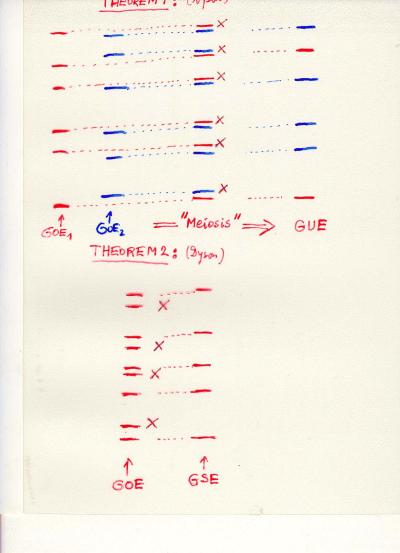 THEOREM 1: (Dyson)
× 
×
×
×
×
×
GOE₁ GOE₂ = "Meiosis" ⇒ GUE
THEOREM 2: (Dyson)
×
×
×
×
GOE GSE